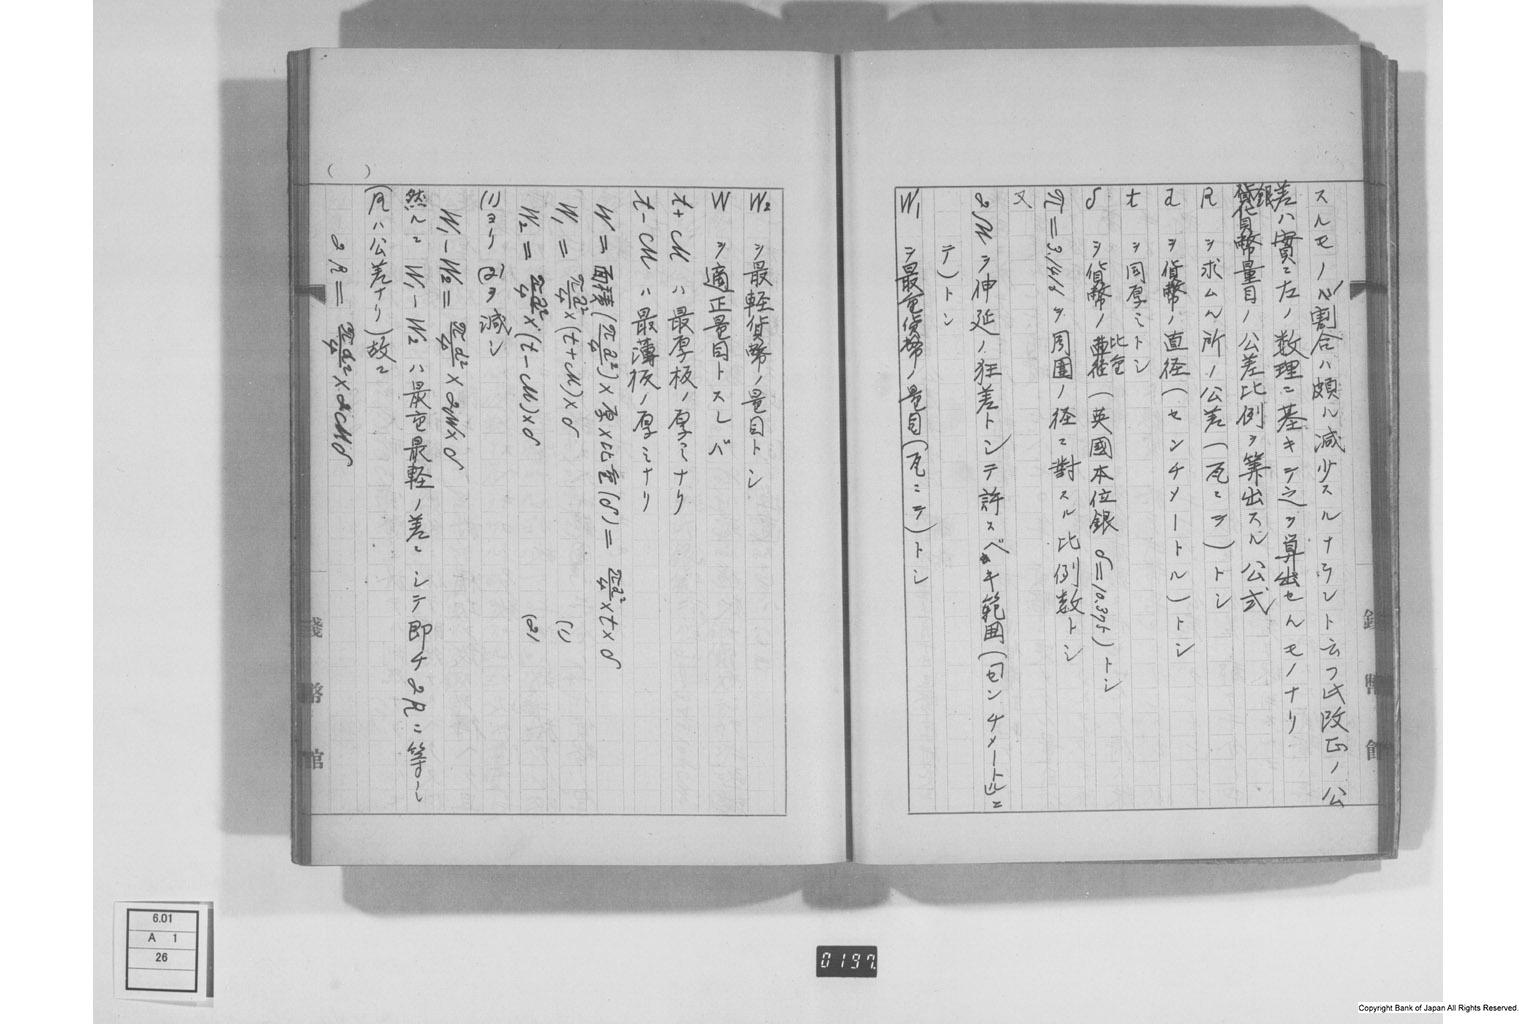 スルモノノ割合ハ頗ル減少スルナラント云フ此改正ノ公
差ハ實ニ左ノ数理ニ基キテ之ヲ算出セルモノナリ
銀貨幣量目ノ公差比例ヲ算出スル公式
R ヲ求ムル所ノ公差(瓦ニテ)トシ
d ヲ貨幣ノ直径(センチメートル)トシ
t ヲ同厚ミトシ
δ ヲ貨幣ノ比重(英國本位銀 δ=10.375)トシ
π=3.1416ヲ周圍ノ径ニ對スル比例数トシ
又
2M ヲ伸延ノ狂差トシテ許スベキ範囲(センチメートルニ
テ)トシ
W₁ ヲ最重貨幣ノ量目(瓦ニテ)トシ
W₂ ヲ最軽貨幣ノ量目トシ
W ヲ適正量目トスレバ
t+M ハ最厚板ノ厚ミナリ
t-M ハ最薄板ノ厚ミナリ
W=面積(πd²/4)×厚×比重(δ)=πd²/4×t×δ
W₁=πd²/4×(t+M)×δ (1)
W₂=πd²/4×(t-M)×δ (2)
(1)ヨリ(2)ヲ減シ
W₁-W₂=πd²/4×2M×δ
然ルニ W₁-W₂ ハ最重最軽ノ差ニシテ即チ2Rニ等シ
(Rハ公差ナリ)故ニ
2R=πd²/4×2Mδ
( )
錢幣館
錢幣館
6.01
A 1
26
0197
Copyright Bank of Japan All Rights Reserved.